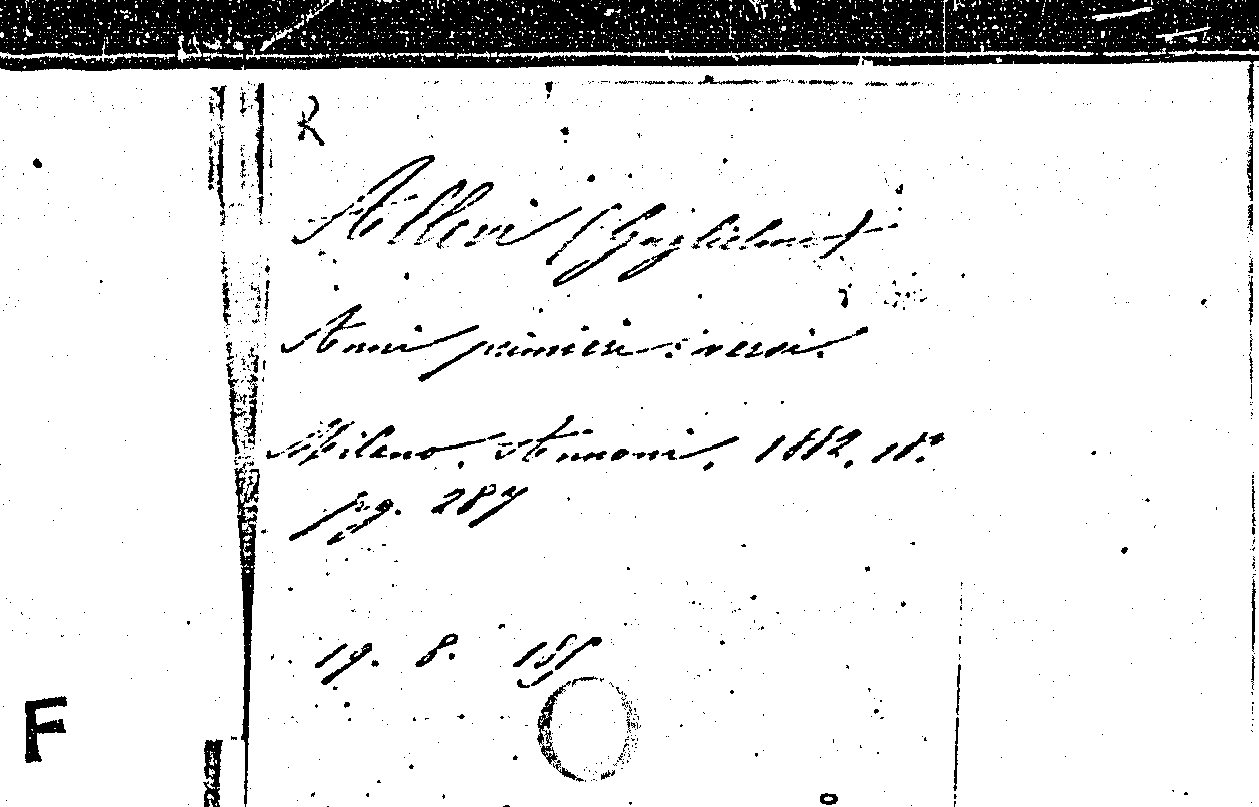 R
Allevi (Guglielmo)
Anni primieri: versi.
Milano, Annoni, 1882, 18º
pg. 287
19. 8. 155
F